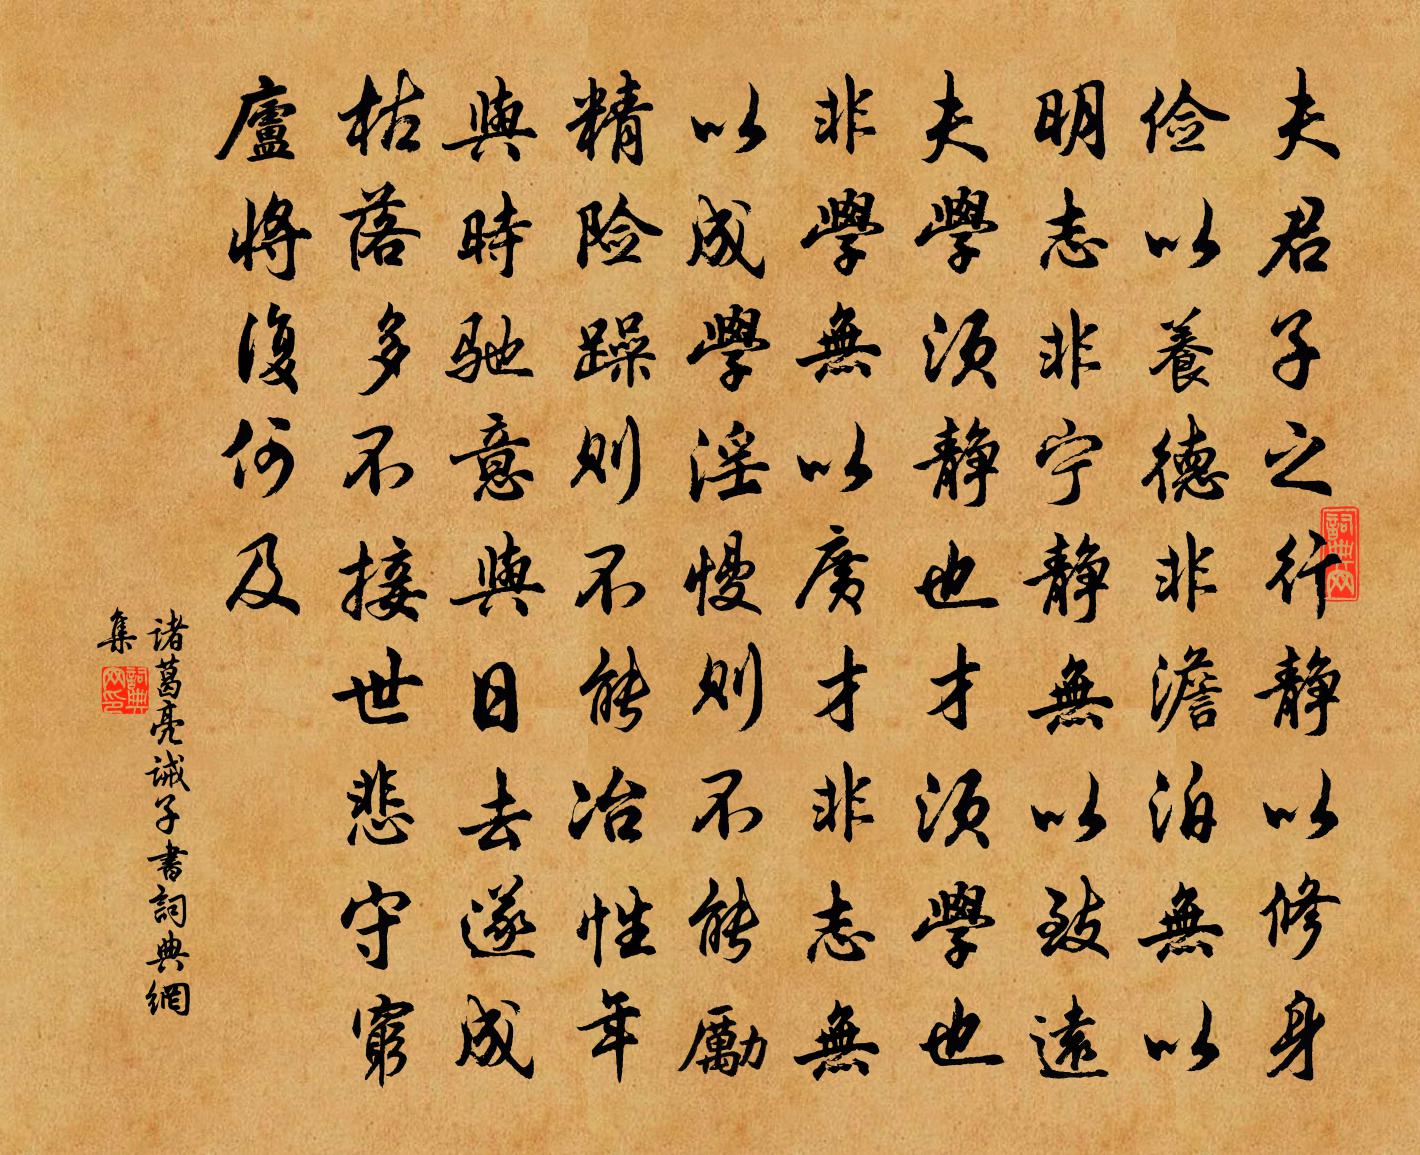 夫君子之行静以修身
俭以養德非澹泊無以
明志非宁静無以致遠
夫學须静也才须學也
非學無以廣才非志無
以成學淫慢则不能勵
精险躁则不能冶性年
與時驰意與日去遂成
枯落多不接世悲守窮
廬将復何及
诸葛亮诫子書詞典網
集
詞典网
詞典网印